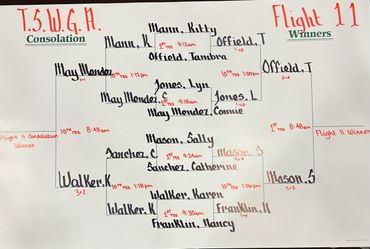 T.S.W.G.A.
Flight 11
Consolation
Winners
Mann, Kitty
Mann, K
1st Tee 9:12am
Offield, T
1 up
Offield, Tambra
May Mendez
10th Tee 1:12pm
10th Tee 1:00pm
Offield, T
Jones, Lyn
May Mendez, C
1st Tee 9:18am
Jones, L
1 up
May Mendez, Connie
10th Tee 8:48am
1st Tee 8:48am
Flight 11 Consolation
Winner
Flight 11 Winner
Mason, Sally
Sanchez, C
1st Tee 9:24am
Mason, S
Sanchez, Catherine
Walker, K
3+2
10th Tee 1:18pm
10th Tee 1:06pm
Mason, S
3+2
Walker, Karen
Walker, K
1st Tee 9:30am
Franklin, N
1 up
Franklin, Nancy